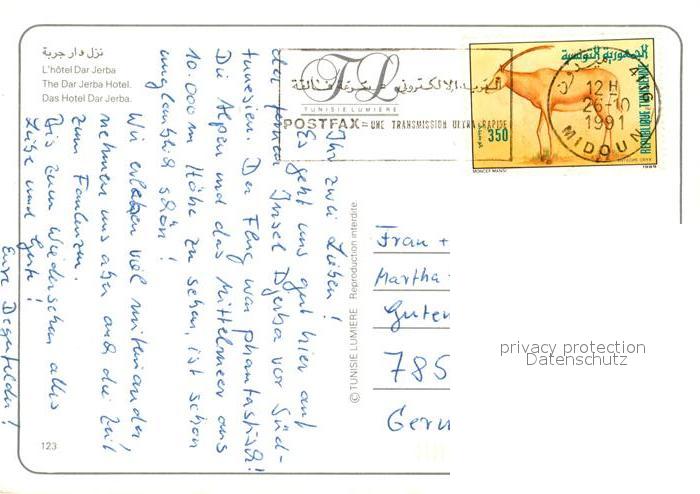 نزل دار جربة
L'hôtel Dar Jerba
The Dar Jerba Hotel.
Das Hotel Dar Jerba.
TL
TUNISIE LUMIERE
البريد الإلكتروني بسرعة فائقة
POSTFAX = UNE TRANSMISSION ULTRA RAPIDE
الجمهورية التونسية
REPUBLIQUE TUNISIENNE
350
MONCEF MANSI
1989
12 H
26-10
1991
MIDOUN
Ihr zwei Lieben!
Es geht uns gut hier auf
der fernen Insel Djerba vor Süd-
tunesien. Der Flug war phantastisch!
Die Alpen und das Mittelmeer aus
10.000 m Höhe zu sehen ist schon
unglaublich schön!
Wir erleben viel miteinander,
nehmen uns aber auch die Zeit
zum Faulenzen.
Bis zum Wiedersehen alles
Liebe und Gute!
Eure Degenfelder!
© TUNISIE LUMIERE Reproduction interdite
Frau +
Martha
Guten
785
Germ
privacy protection
Datenschutz
123